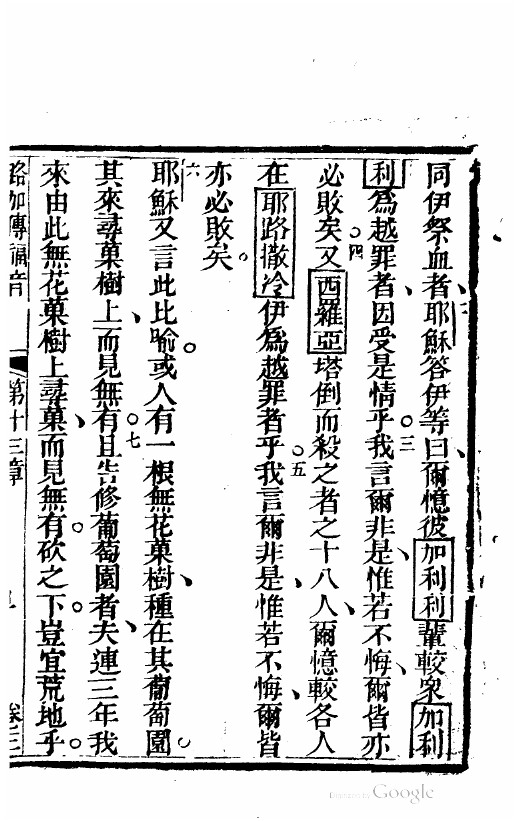 同伊祭血者耶穌答伊等曰爾憶彼加利利輩較眾加利
利為越罪者因受是情乎三我言爾非是惟若不悔爾皆亦
必敗矣四又西羅亞塔倒而殺之者之十八人爾憶較各人
在耶路撒冷伊為越罪者乎五我言爾非是惟若不悔爾皆
亦必敗矣
六耶穌又言此比喻或人有一根無花菓樹種在其葡萄園
其來尋菓樹上而見無有七且告修葡萄園者夫連三年我
來由此無花菓樹上尋菓而見無有砍之下豈宜荒地乎
路加傳福音 第十三章 卷三
Digitized by Google